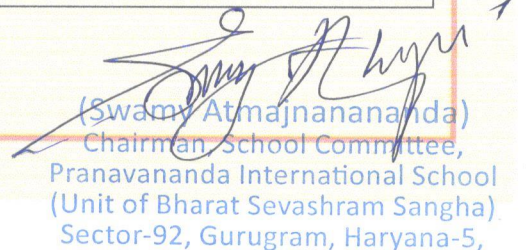 (Swamy Atmajnanananda)
Chairman, School Committee,
Pranavananda International School
(Unit of Bharat Sevashram Sangha)
Sector-92, Gurugram, Haryana-5,